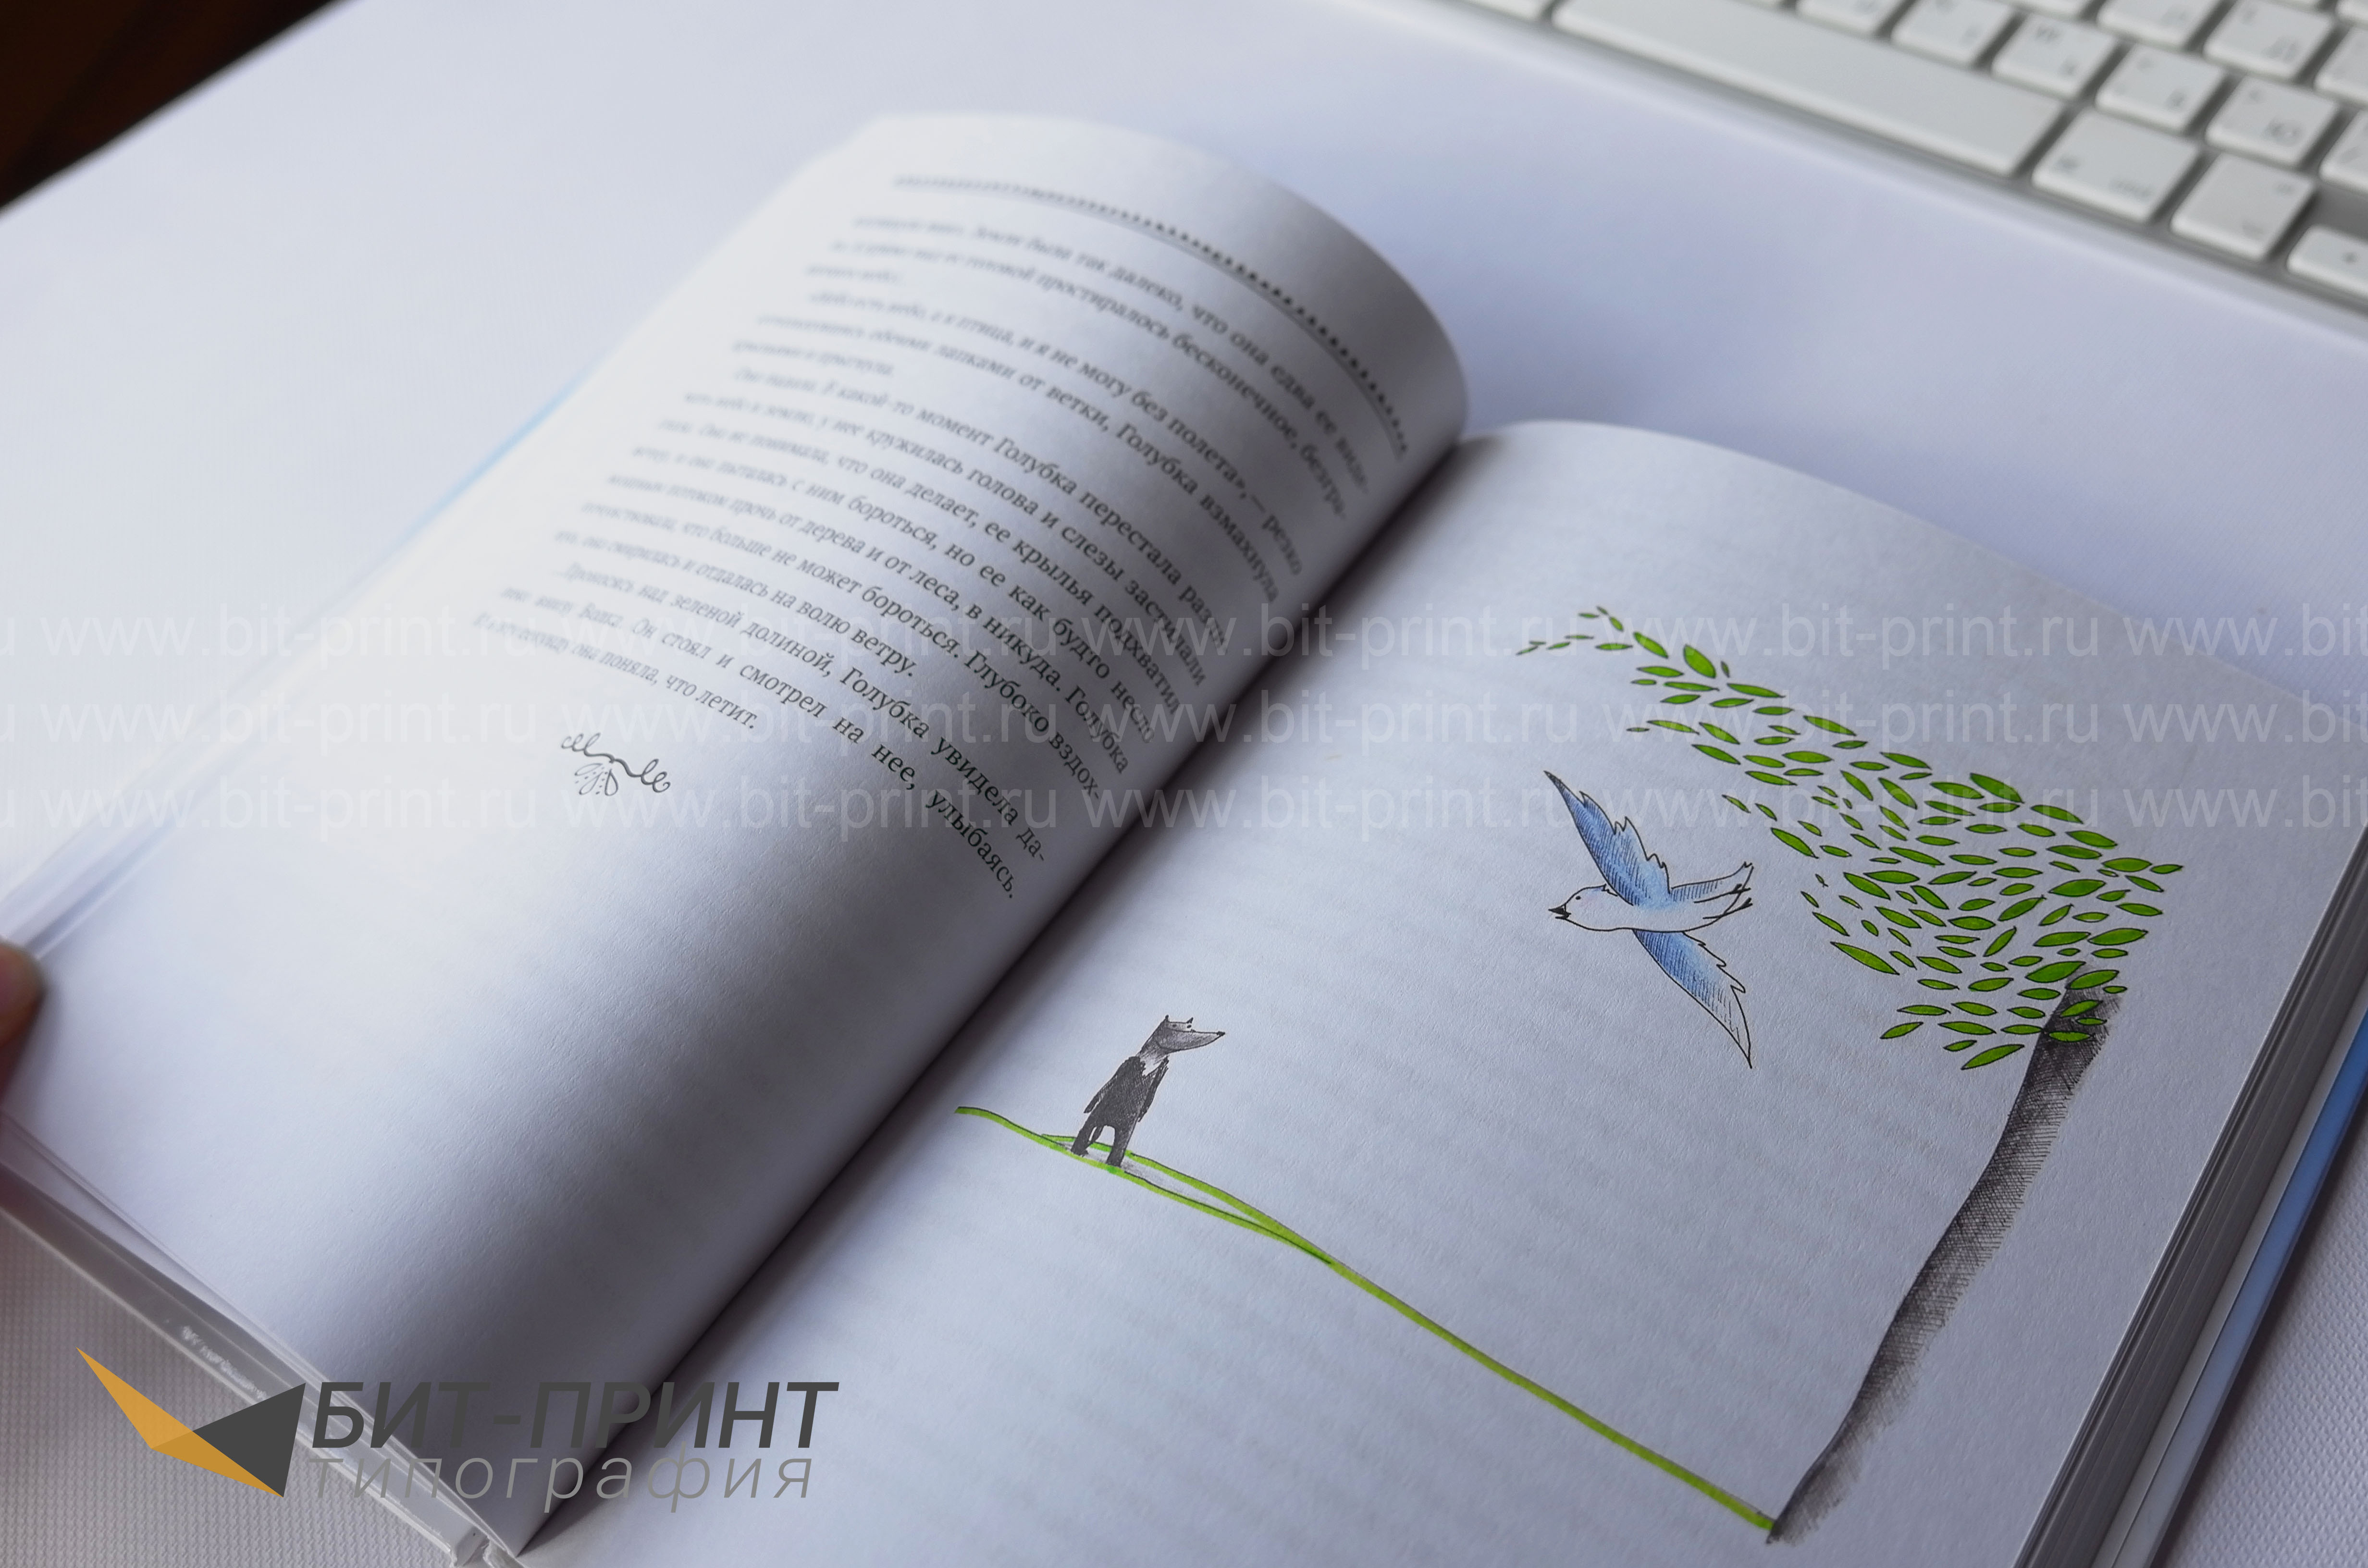 Земля была так далеко, что она едва ее виде-
простиралось бесконечное, безгра-
небо, а я птица, и я не могу без полета», — резко
обеими лапками от ветки, Голубка взмахнула
Она падала. В какой-то момент Голубка перестала разли-
небо и землю, у нее кружилась голова и слезы застилали
глаза. Она не понимала, что она делает, ее крылья подхватил
ветер, и она пыталась с ним бороться, но ее как будто несло
потоком прочь от дерева и от леса, в никуда. Голубка
почувствовала, что больше не может бороться. Глубоко вздох-
нув, она смирилась и отдалась на волю ветру.
Проносясь над зеленой долиной, Голубка увидела да-
внизу Волка. Он стоял и смотрел на нее, улыбаясь.
она поняла, что летит.
www.bit-print.ru www.bit-print.ru www.bit-print.ru www.bit-print.ru www.bit
www.bit-print.ru www.bit-print.ru www.bit-print.ru www.bit-print.ru www.bit
www.bit-print.ru www.bit-print.ru www.bit-print.ru www.bit-print.ru www.bit
БИТ-ПРИНТ
типография